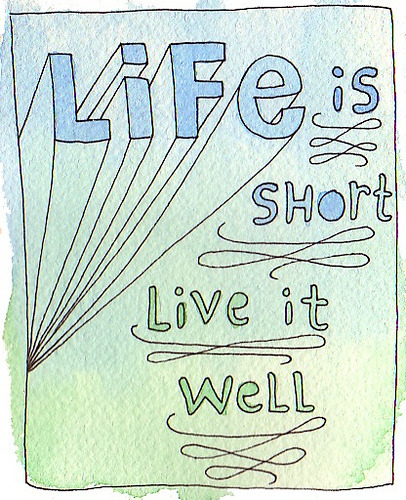 LiFe is
SHort
Live it
WeLL